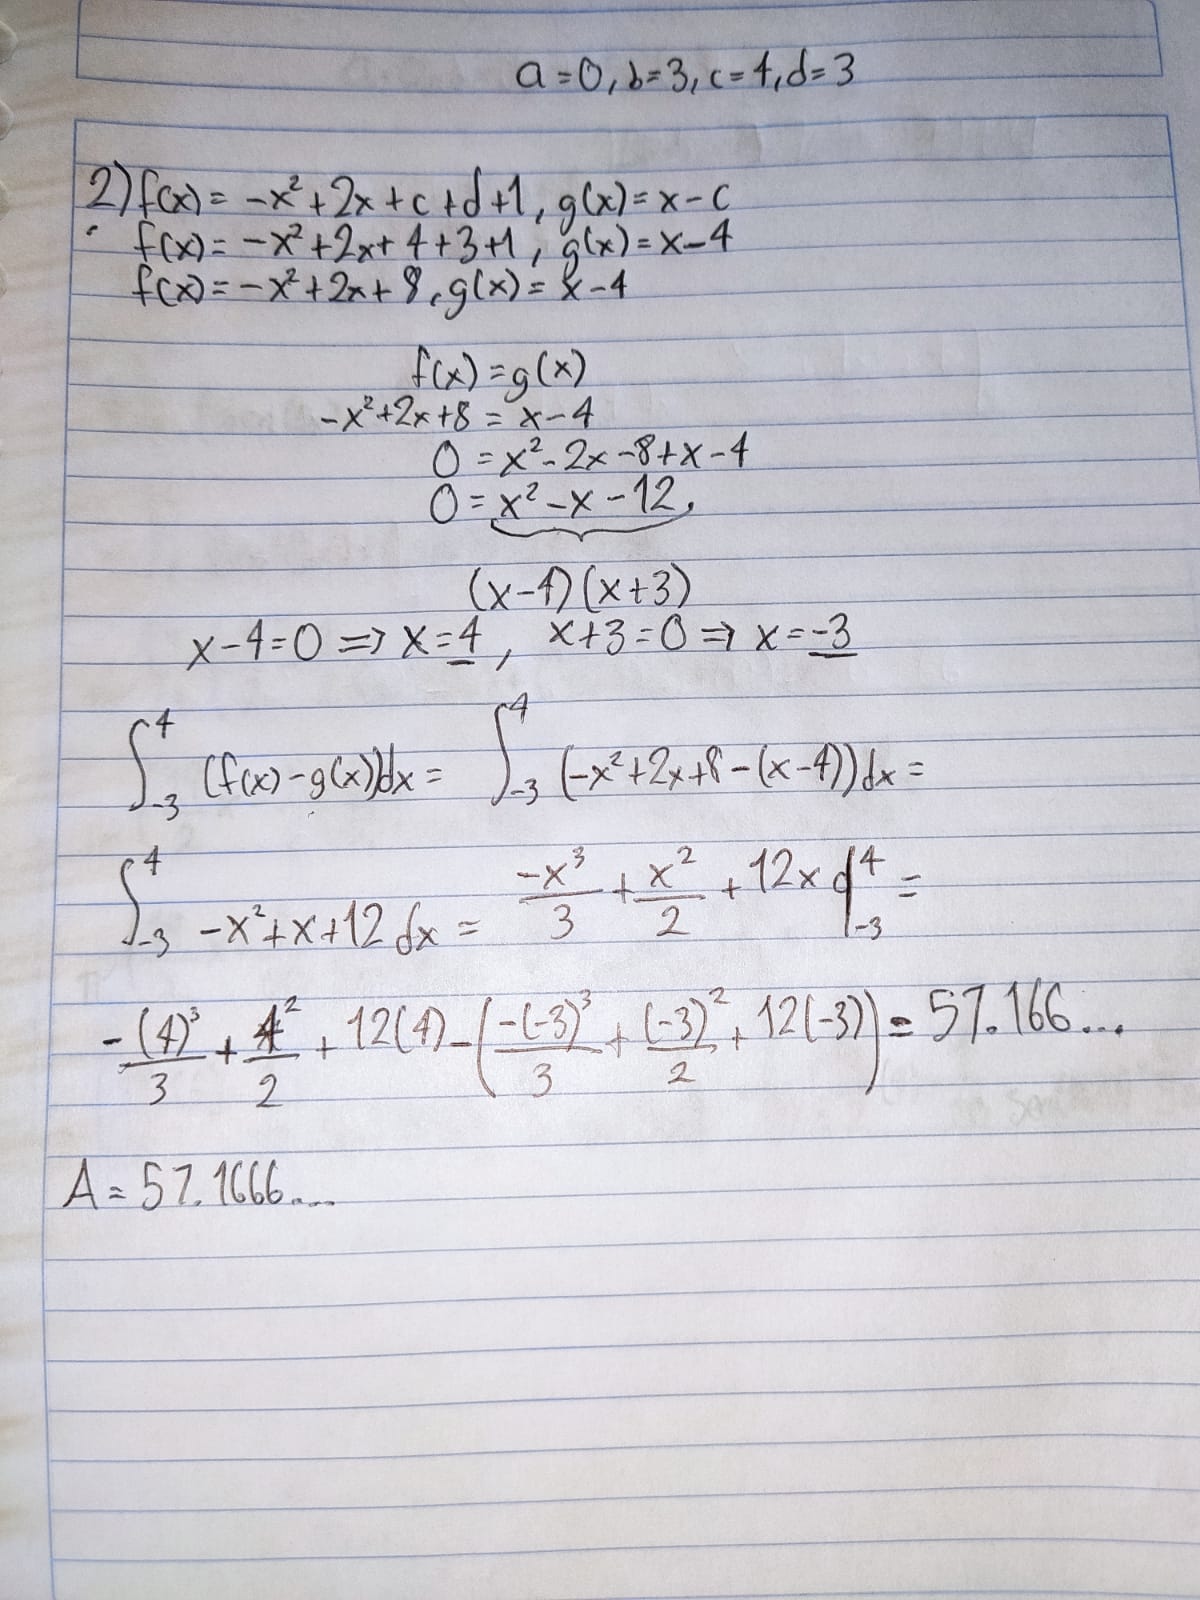 a=0, b=3, c=4, d=3
2) f(x) = -x² + 2x + c + d + 1, g(x) = x - c
f(x) = -x² + 2x + 4 + 3 + 1, g(x) = x - 4
f(x) = -x² + 2x + 8, g(x) = x - 4
f(x) = g(x)
-x² + 2x + 8 = x - 4
0 = x² - 2x - 8 + x - 4
0 = x² - x - 12
(x-4)(x+3)
x-4=0 => x=4, x+3=0 => x=-3
∫₋₃⁴ (f(x) - g(x))dx = ∫₋₃⁴ (-x² + 2x + 8 - (x-4))dx =
∫₋₃⁴ -x² + x + 12 dx = -x³/3 + x²/2 + 12x |₋₃⁴ =
-(4)³/3 + 4²/2 + 12(4) - (-(-3)³/3 + (-3)²/2 + 12(-3)) = 57.166...
A = 57.1666...